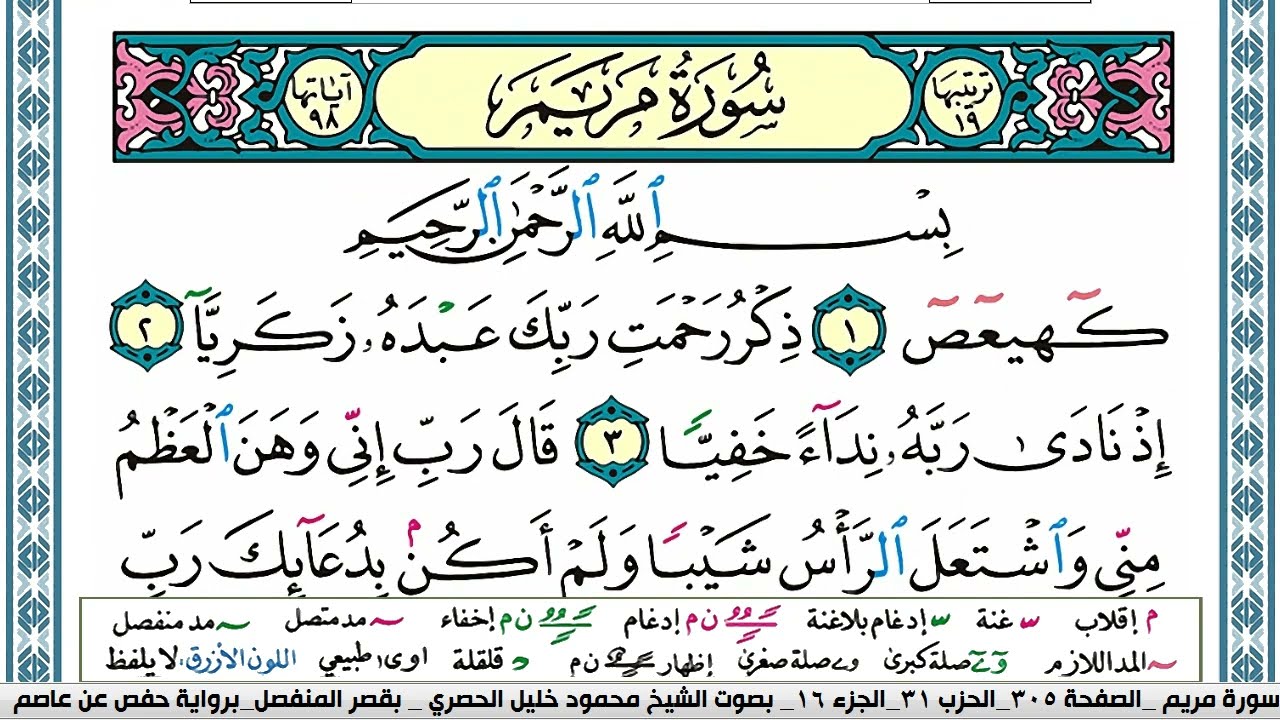 ترتيبها ١٩ سُورَةُ مَرْيَمَ آياتها ٩٨
بِسْمِ ٱللَّهِ ٱلرَّحْمَٰنِ ٱلرَّحِيمِ
كٓهيعٓصٓ ١ ذِكْرُ رَحْمَتِ رَبِّكَ عَبْدَهُۥ زَكَرِيَّآ ٢
إِذْ نَادَىٰ رَبَّهُۥ نِدَآءً خَفِيًّا ٣ قَالَ رَبِّ إِنِّي وَهَنَ ٱلْعَظْمُ
مِنِّي وَٱشْتَعَلَ ٱلرَّأْسُ شَيْبًا وَلَمْ أَكُنۢ بِدُعَآئِكَ رَبِّ
م إقلاب غنة إدغام بلاغنة ن م إدغام ن م إخفاء مد متصل مد منفصل
المد اللازم صلة كبرى و ے صلة صغرى إظهار ن م قلقلة اوى طبيعي اللون الأزرق، لا يلفظ
سورة مريم _الصفحة ٣٠٥_الحزب ٣١_الجزء ١٦_ بصوت الشيخ محمود خليل الحصري _ بقصر المنفصل_برواية حفص عن عاصم